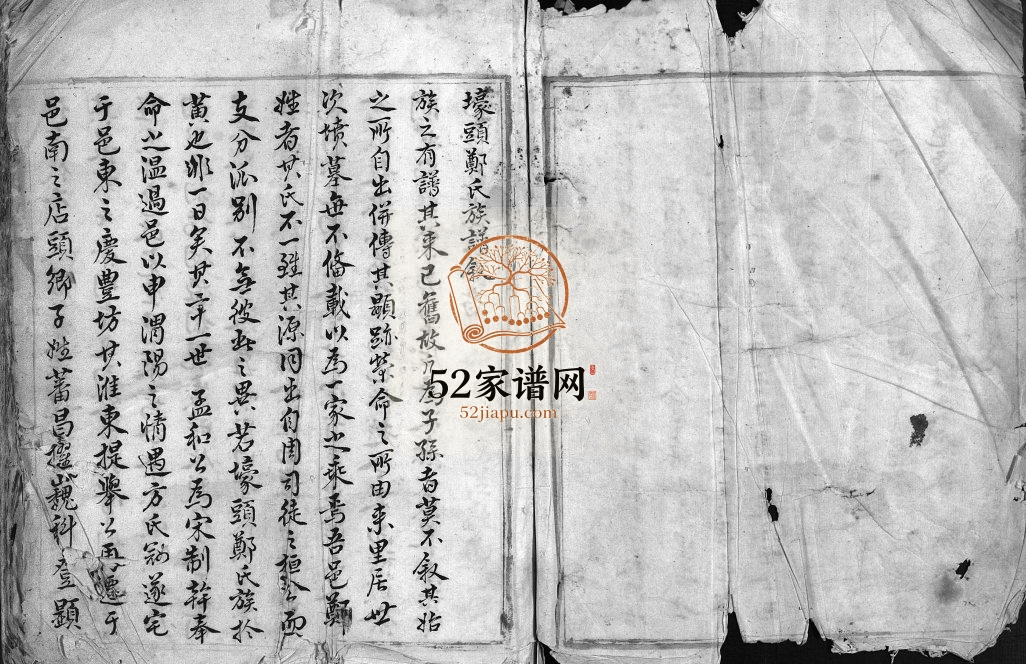 壕頭鄭氏族譜敘
族之有譜其来已舊故凢為子孫者莫不敘其始
之所自出併傳其顯跡榮命之所由来里居世
次墳墓無不俻載以為一家之乘焉吾邑鄭
姓者其氏不一雖其源同出自周司徒之桓公而
支分派别不無彼此之異若壕頭鄭氏族於
黃也非一日矣其二十一世 孟和公為宋制幹奉
命之温過邑以申渭陽之情遇方氏冦遂宅
于邑東之慶豐坊其淮東提舉公再遷于
邑南之店頭鄉子姓蕃昌擢巍科登顯
52家谱网
52jiapu.com